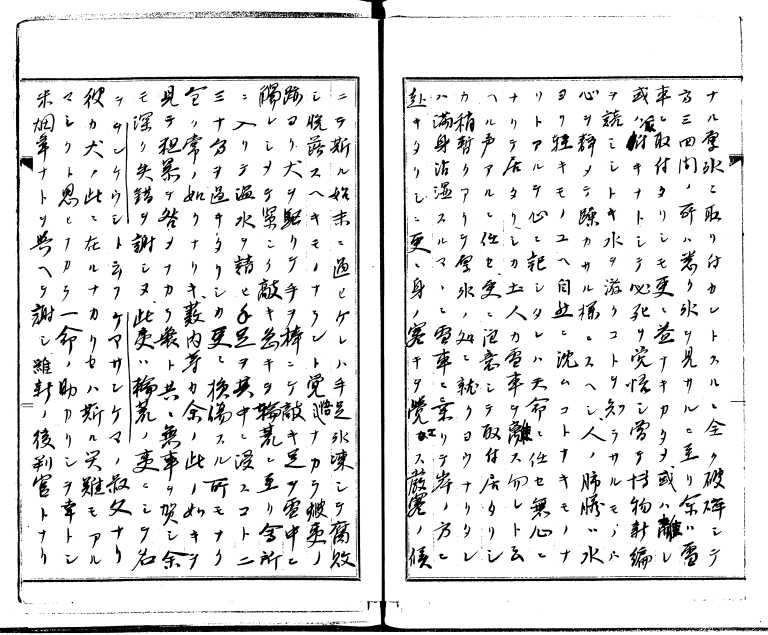 ナル厚氷ニ取リ付カントスルニ全ク破砕シテ
方三四間ノ所ハ悉ク氷ヲ見サルニ至リ余ハ雪
車ニ取付タリシモ更ニ益ナキカタヲ或ハ離レ
或ハ附キナトシテ必死ヲ覚悟シ曽テ博物新編
ヲ読ミシトキ水ヲ游クコトヲ知ラサルモノハ
心ヲ静メテ躁カサル様ニスヘシ人ノ肺臓ハ水
ヨリ軽キモノユヘ自然ニ沈ムコトナキモノナ
リトアルヲ心ニ記シタレハ天命ニ任セ無心ニ
ナリテ居タリシカ土人カ雪車ヲ離ス勿レト云
ヘル声アルニ任セ更ニ注意シテ取付居タリシ
カ稍暫クアリテ厚氷ノ処ニ就クヨウナリタレ
ハ満身沾湿スルマヽニ雪車ニ乗リテ岸ノ方ニ
赴キタリシニ更ニ身ノ寒キヲ覚ヘス厳寒ノ候
ニテ斯ル始末ニ過ヒケレハ手足氷凍シテ腐敗
シ脱落スヘキモノナラント覚悟ナカラ被夷ノ
跡ヨリ犬ヲ駆リテ手ヲ棒ニテ敲キ足ヲ雪中ニ
触レシメテ果ニ敲キ急キヲ輪荒ニ至リ会所
ニ入リテ温水ヲ請ヒ手足ヲ其中ニ浸スコト二
三十分ヲ過キタリシカ更ニ損傷スル所モナ
ク常ノ如クナリキ藪内等カ余ノ此ノ如キヲ
見テ粗暴ヲ咎メナカラ衆ト共ニ無事ヲ賀シ余
モ深ク失錯ヲ謝シヌ此夷ハ輪荒ノ夷ニシテ名
ヲシンケウシト云フケマサンケマノ叔父ナリ
彼カ犬ノ此ニ在ルナカリセハ斯ル災難モアル
マシクト思ヒナカラ一命ノ助カリシヲ幸トシ
米烟草ナトヲ与ヘテ謝シ維新ノ後判官トナリ